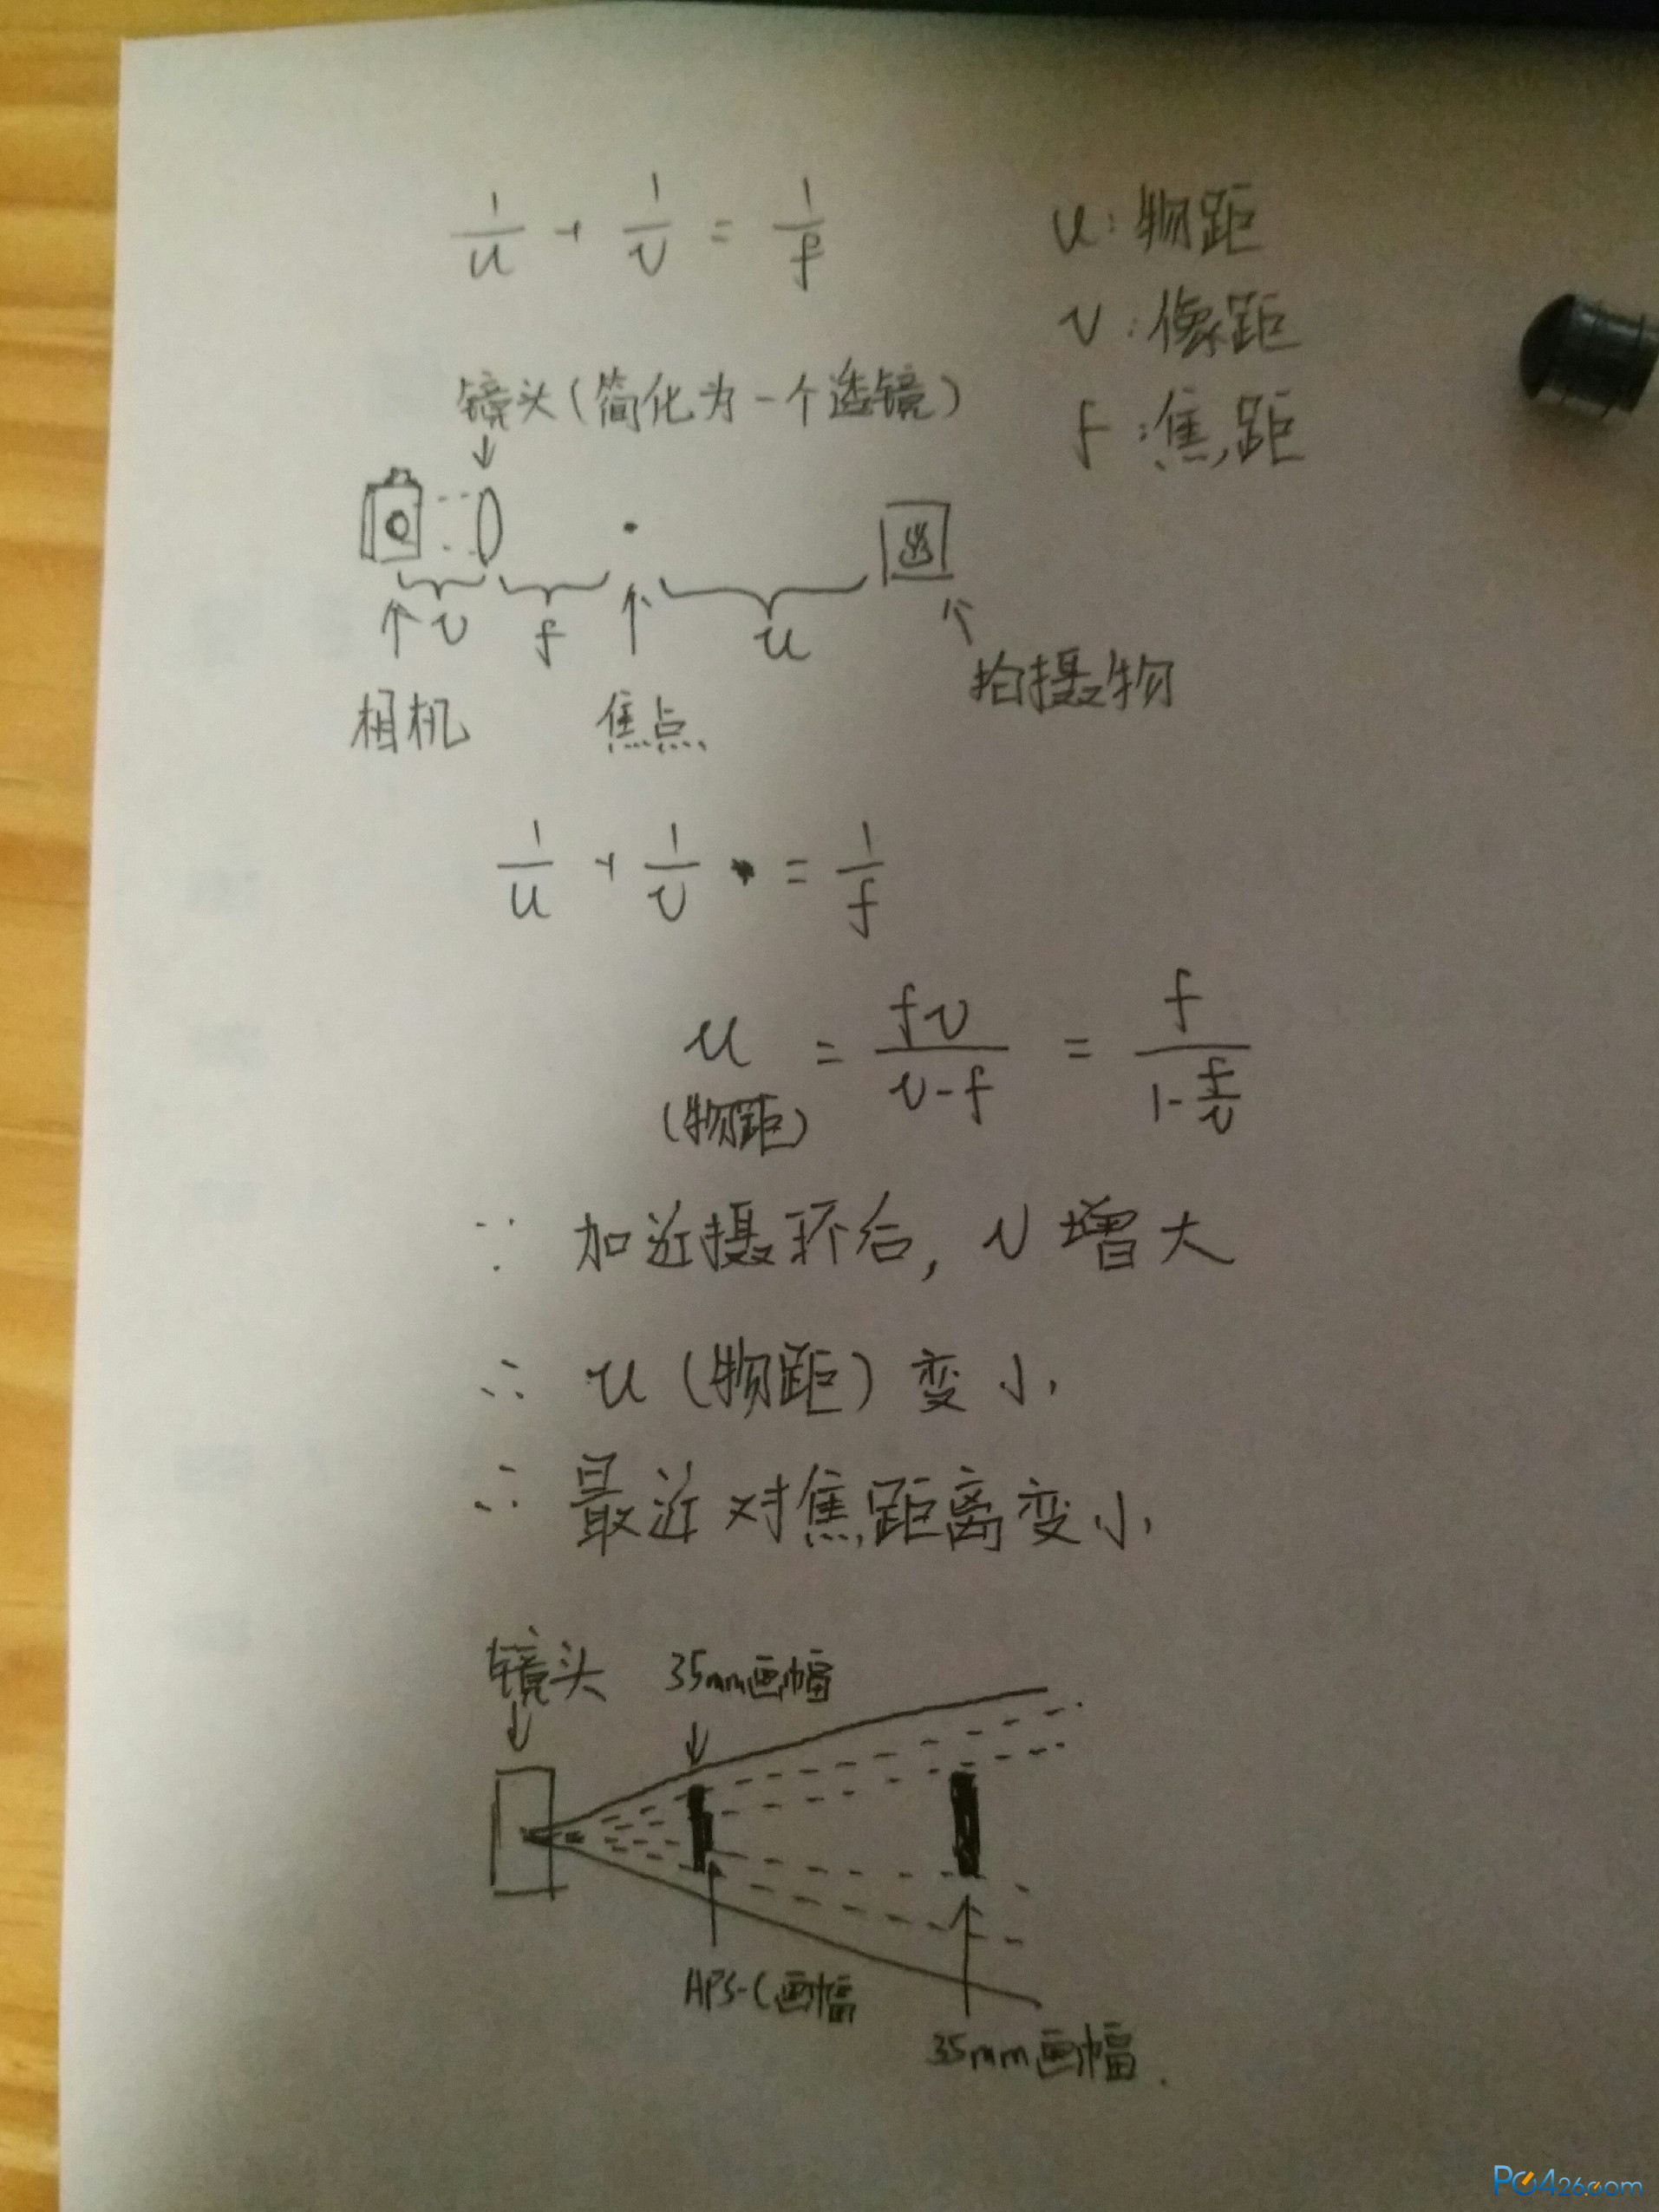 1/u + 1/v = 1/f
u:物距
v:像距
f:焦距
镜头(简化为一个透镜)
v f u
相机 焦点 拍摄物
1/u + 1/v = 1/f
u = fv/(v-f) = f/(1-f/v)
(物距)
∵ 加近摄环后, v增大
∴ u (物距) 变小
∴ 最近对焦距离变小
镜头 35mm画幅
APS-C画幅
35mm画幅.